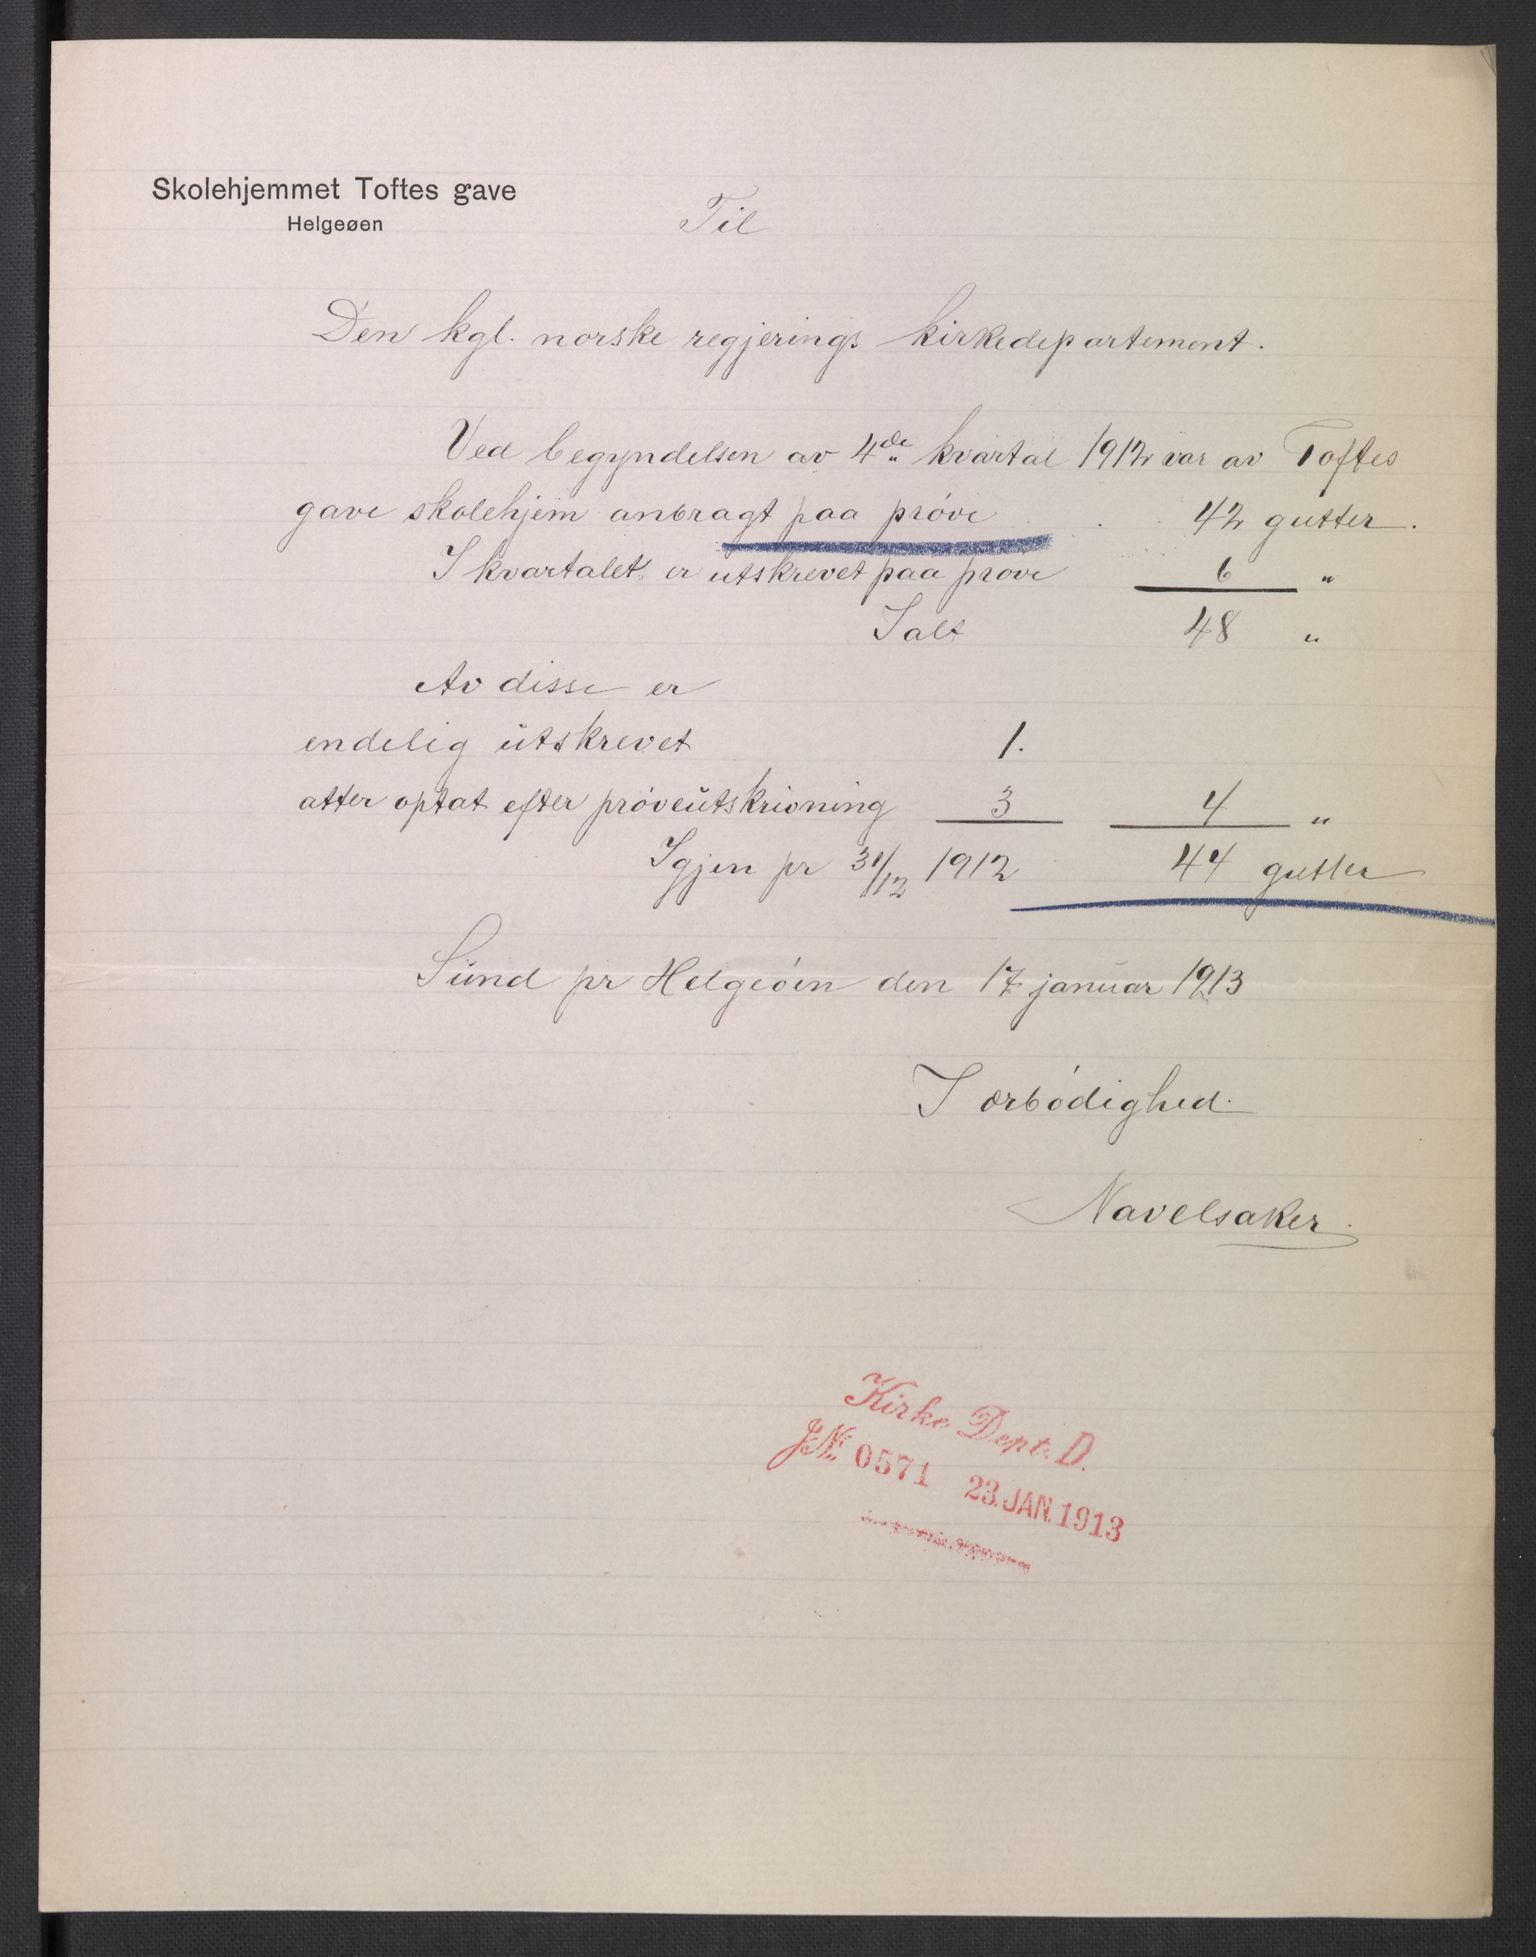 Skolehjemmet Toftes gave
Helgeøen
Til
Den kgl. norske regjerings kirkedepartement.
Ved begyndelsen av 4de kvartal 1912 var av Toftes
gave skolehjem anbragt paa prøve 42 gutter.
I kvartalet er utskrevet paa prøve 6 "
Ialt 48 "
Av disse er
endelig utskrevet 1.
atter optat efter prøveutskrivning 3 4 "
Igjen pr 31/12 1912 44 gutter
Sund pr Helgeøen den 17 januar 1913
I ærbødighed.
Navelsaker.
Kirke Dept. D.
J.№ 0571 23. JAN. 1913